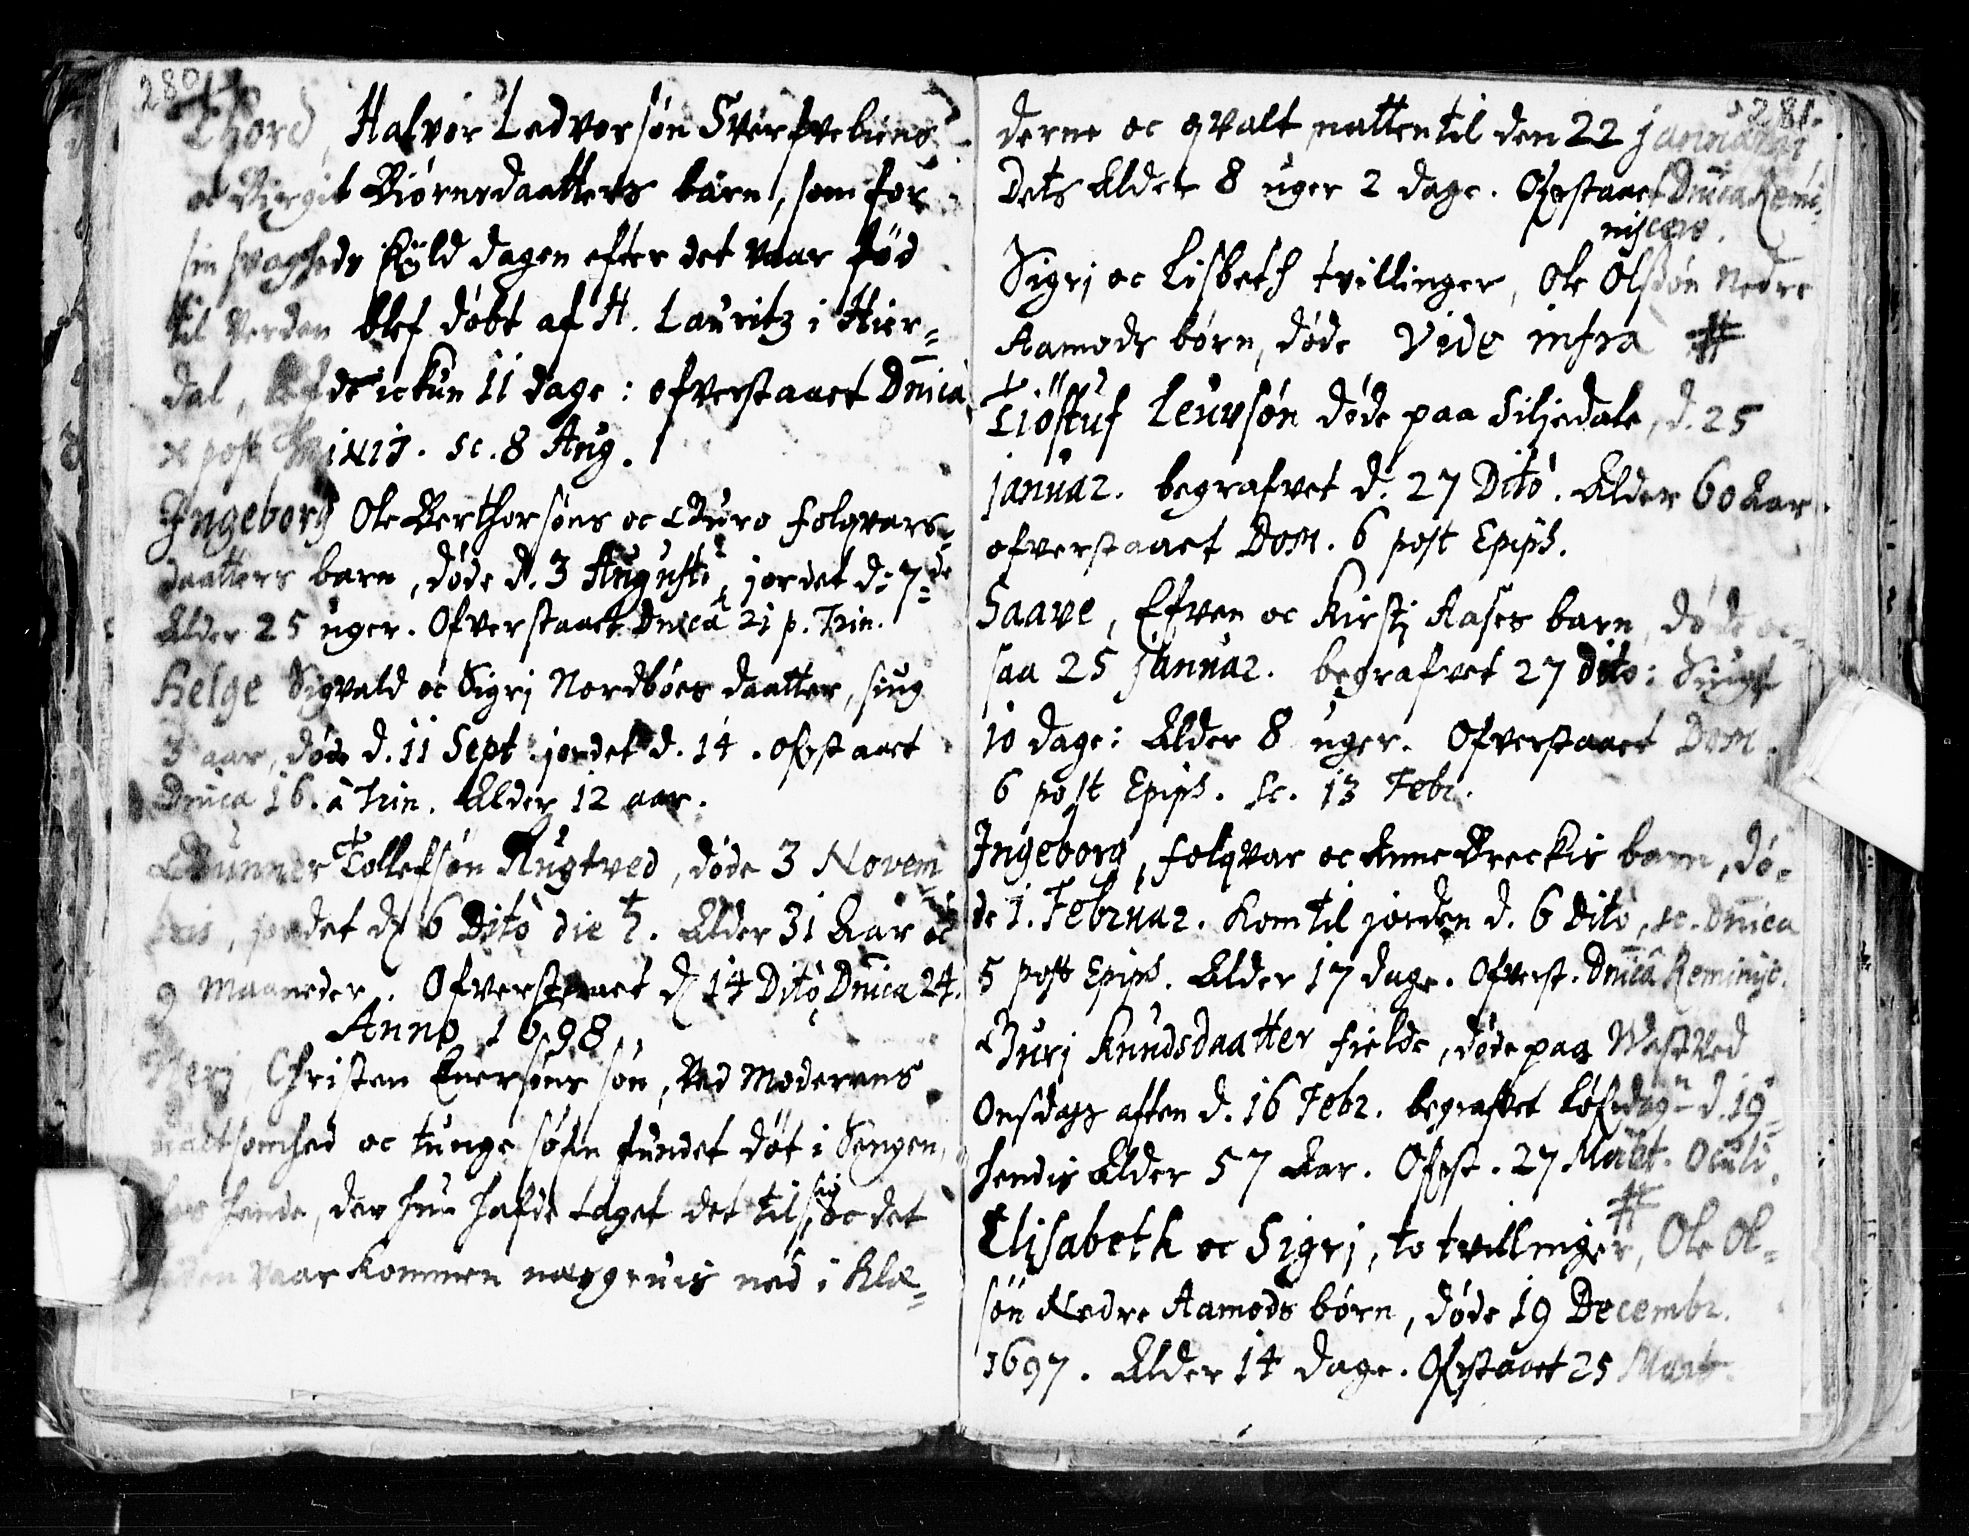 280
Thord, Halfvor Ledvorsøn Sverfveliens
oc Birgit Biørnsdaatters barn, som for
sin svagheds skyld dagen efter det vaar fød
til Verden blef døbt af H. Lauritz i Hier=
dal, lefde ickun 11 dage: ofverstaaet Dnica
X post Trinit. sc. 8 Aug.
Ingeborg Ole Berthorsøns oc Guro folqvars=
daatters barn, døde d. 3 Augusti, jordet d: 7de
Elder 25 uger. Ofverstaaet Dnica 21 p. Trin.
Helge Sigvald oc Sigrj Nordbøes daatter, siug
3 aar, døde d. 11 Sept jordet d. 14. ofrstaaet
Dnica 16. à Trin. Elder 12 aar.
Gunner Tollefsøn Rugtved, døde 3 Novem
bris, jordet d. 6 Dito die ♄. Elder 31 Aar oc
9 Maaneder. Ofverstaaet d. 14 Dito Dnica 24.
Anno 1698.
Christen Enersøns søn, Ved Moderens
uactsomhed oc tunge søfn fundet døt i Sengen,
hos hende, der hun hafde taget det til sig oc det
siden vaar kommen næsgruis ned i Klæ=
281.
derne oc qvalt natten til den 22 Januarii
Dets Elder 8 uger 2 dage. Ofrstaaet Dnica Remi=
niscere.
Sigrj oc Lisbeth tvillinger, Ole Olssøn Nedre
Aamods børn, døde Vide infra #
Tiøstuf Leuvsøn døde paa Siljedale, d. 25
Januar. begrafvet d. 27 Dito. Elder 60 Aar.
ofverstaaet Dom. 6 post Epiph.
Saave, Efven oc Kirstj Aases barn, døde oc=
saa 25 Januar. begrafvet 27 Dito: Siugt
10 dage: Elder 8 uger. Ofverstaaet Dom.
6 post Epiph. sc. 13 Febr.
Ingeborg, folqvar oc Anne Breckis barn, dø=
de 1. Februar. Kom til jorden d. 6 Dito, sc. Dnica
5 post Epiph. Elder 17 dage. Ofverst. Dnica Reminisc.
Gurj Knudsdaatter fielde, døde paa Wastved
Onsdags aften d. 16 Febr. begrafvet Løfverdagen d. 19
hendis Elder 57 Aar. Ofrst. 27 Mart. Oculi.
#
Elisabeth oc Sigrj, to tvillinger, Ole Ol=
søn Nedre Aamods børn, døde 19 Decembr.
1697. Elder 14 dage. Ofrstaaet 25 Mart.